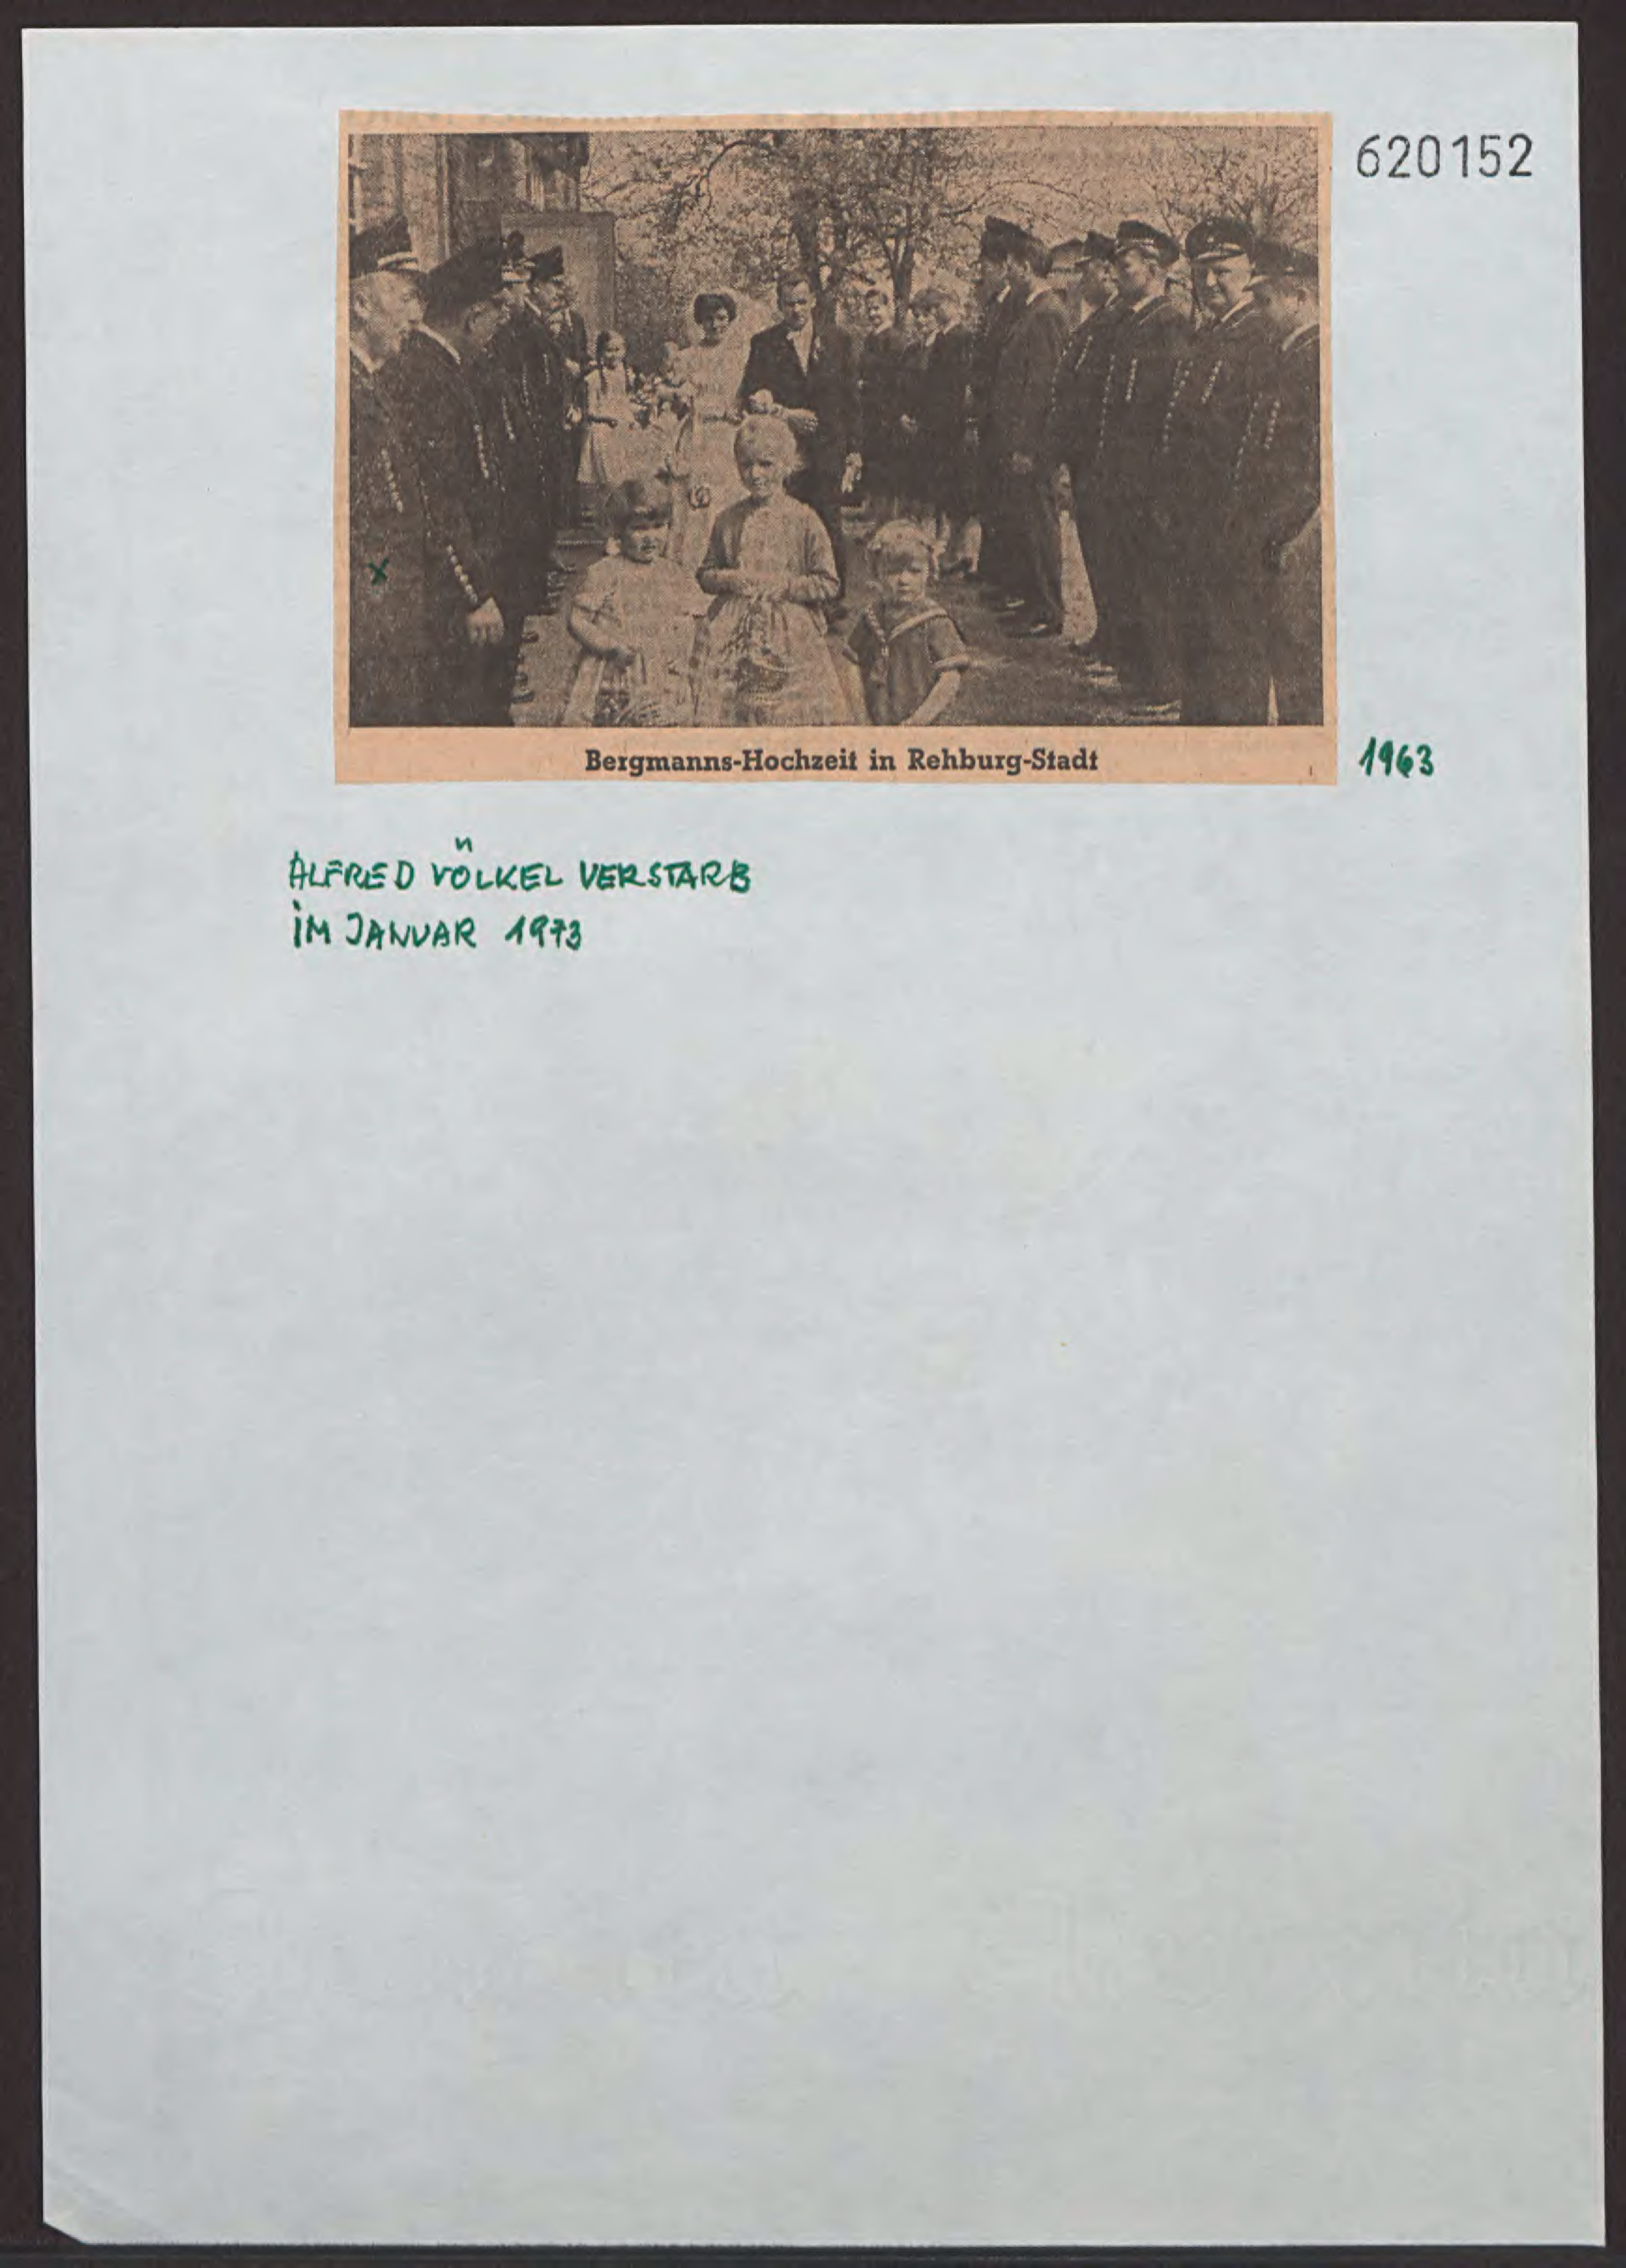 620152
Bergmanns-Hochzeit in Rehburg-Stadt
1963
ALFRED VÖLKEL VERSTARB
IM JANUAR 1973
x